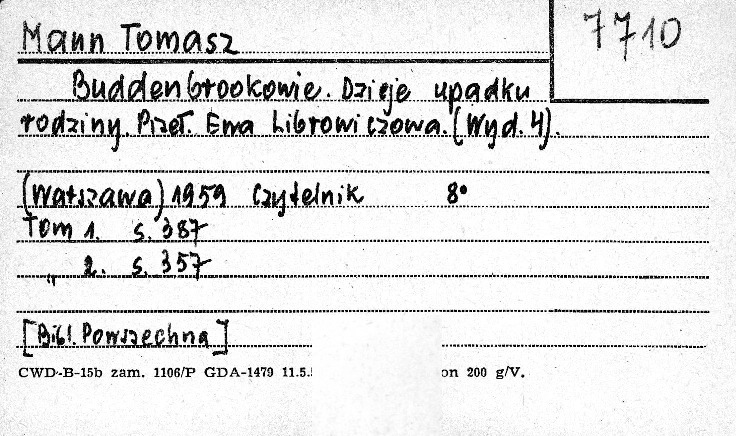 Mann Tomasz
7710
Buddenbrookowie. Dzieje upadku
rodziny. Przeł. Ewa Librowiczowa. (Wyd. 4).
(Warszawa) 1959 Czytelnik 8°
Tom 1. s. 387
„ 2. s. 357
[Bibl. Powszechna]
CWD-B-15b zam. 1106/P GDA-1479 11.5. on 200 g/V.